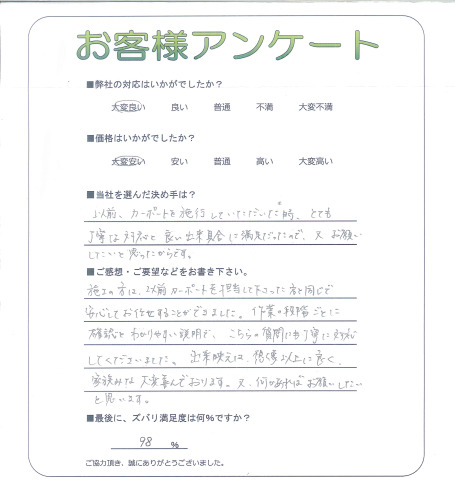 お客様アンケート
■弊社の対応はいかがでしたか？
大変良い 良い 普通 不満 大変不満
■価格はいかがでしたか？
大変安い 安い 普通 高い 大変高い
■当社を選んだ決め手は？
以前、カーポートを施行していただいた時、とても
丁寧な対応と良い出来具合に満足だったので、又お願い
したいと思ったからです。
■ご感想・ご要望などをお書き下さい。
施工の方は、以前カーポートを担当して下さった方と同じで
安心してお任せすることができました。作業の段階ごとに
確認とわかりやすい説明で、こちらの質問にも丁寧に対応
してくださいました。出来映えは、想像以上に良く、
家族みな大変喜んでおります。又、何かあればお願いしたい
と思います。
■最後に、ズバリ満足度は何%ですか？
98 %
ご協力頂き、誠にありがとうございました。